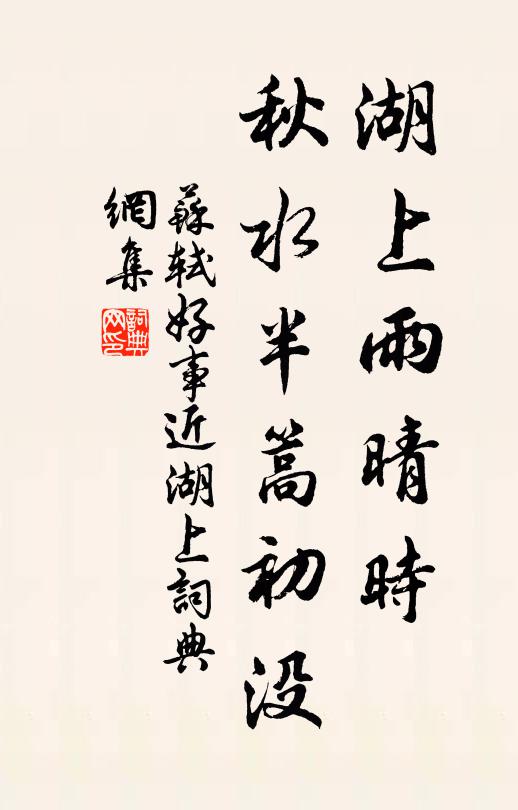 湖上雨晴時
秋水半篙初沒
蘇軾好事近湖上詞典
網集
詞典网印